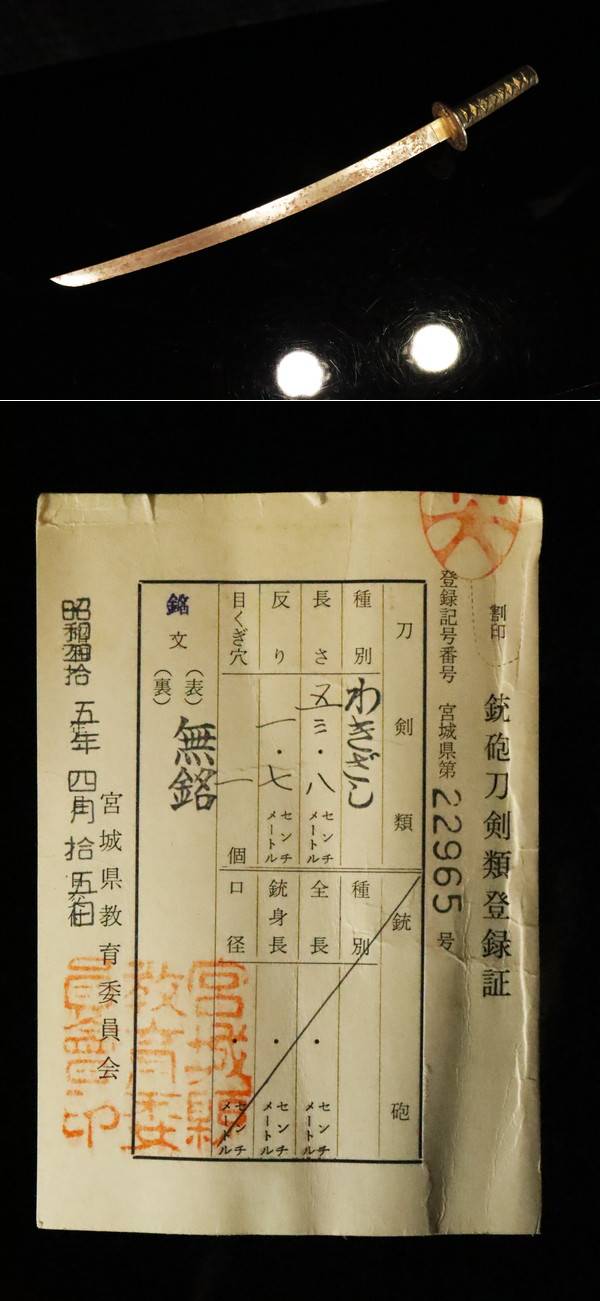 割印
銃砲刀剣類登録証
登録記号番号 宮城県第22965号
刀剣類
種別 わきざし
長さ 五三・八 センチメートル
反り 一・七 センチメートル
目くぎ穴 一個
銃砲
種別
全長 ・ センチメートル
銃身長 ・ センチメートル
口径 ・ センチメートル
銘文
(表) 無銘
(裏)
宮城県教育委員会
昭和 拾五年四月拾五日
宮城縣
教育委
員會印